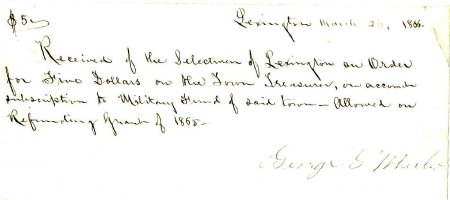 $5
Lexington March 26, 1866.
Received of the Selectmen of Lexington an Order
for Five Dollars on the Town Treasurer, on account
subscription to Military Fund of said town — Allowed on
Refunding Grant of 1865 —
George